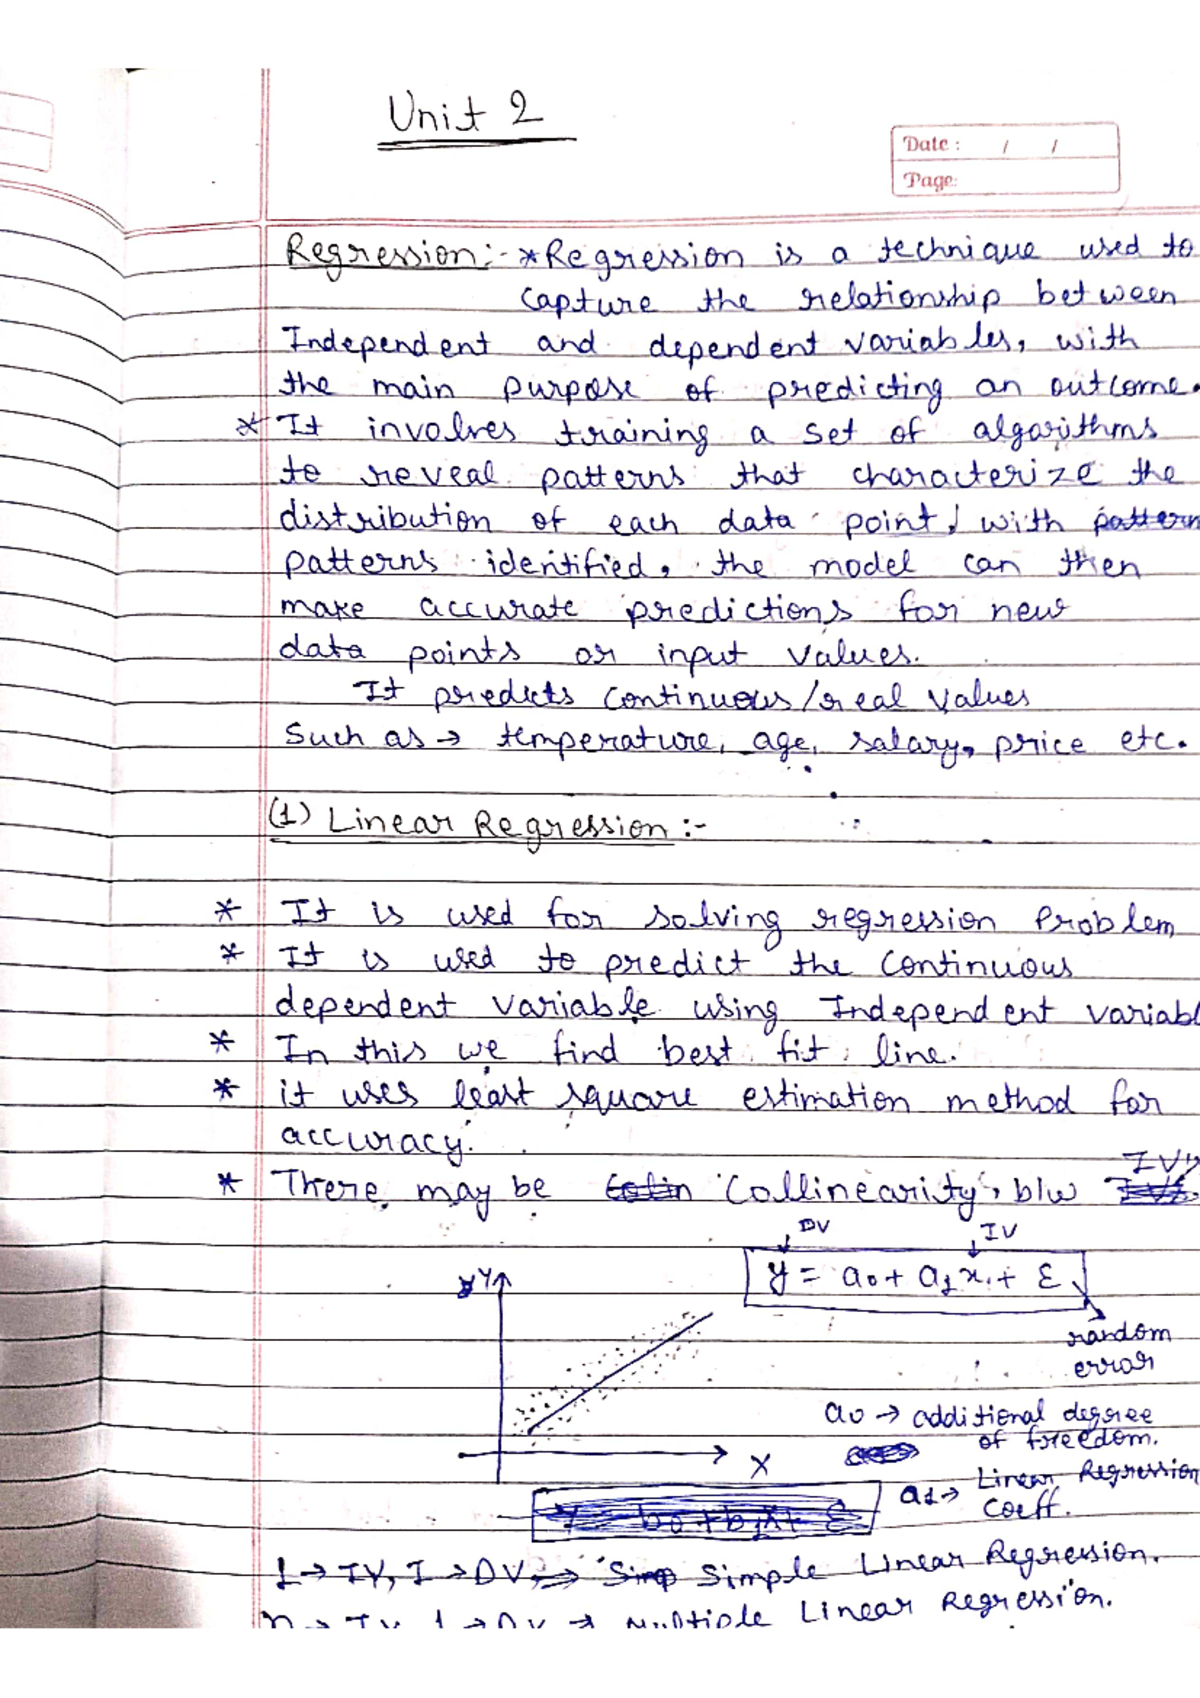 Unit 2
Date : / /
Page:
Regression:- *Regression is a technique used to
capture the relationship between
Independent and dependent variables, with
the main purpose of predicting an outcome.
* It involves training a set of algorithms
to reveal patterns that characterize the
distribution of each data point, with pattern
patterns identified, the model can then
make accurate predictions for new
data points or input values.
It predicts continuous/real values
Such as → temperature, age, salary, price etc.
(1) Linear Regression :-
* It is used for solving regression Problem
* It is used to predict the continuous
dependent variable using Independent variabl
* In this we find best fit line.
* it uses least square estimation method for
accuracy.
IV's
* There may be Colin Collinearity, b/w IVs.
DV IV
y = a0 + a1x + ε
Y
random
error
a0 → additional degree
of freedom.
X
a1 → Linear Regression
Coeff.
Y = b0 + b1x + ε
1 → IV, 1 → DV ⇒ Simp Simple Linear Regression.
n → IV, 1 → DV → Multiple Linear Regression.